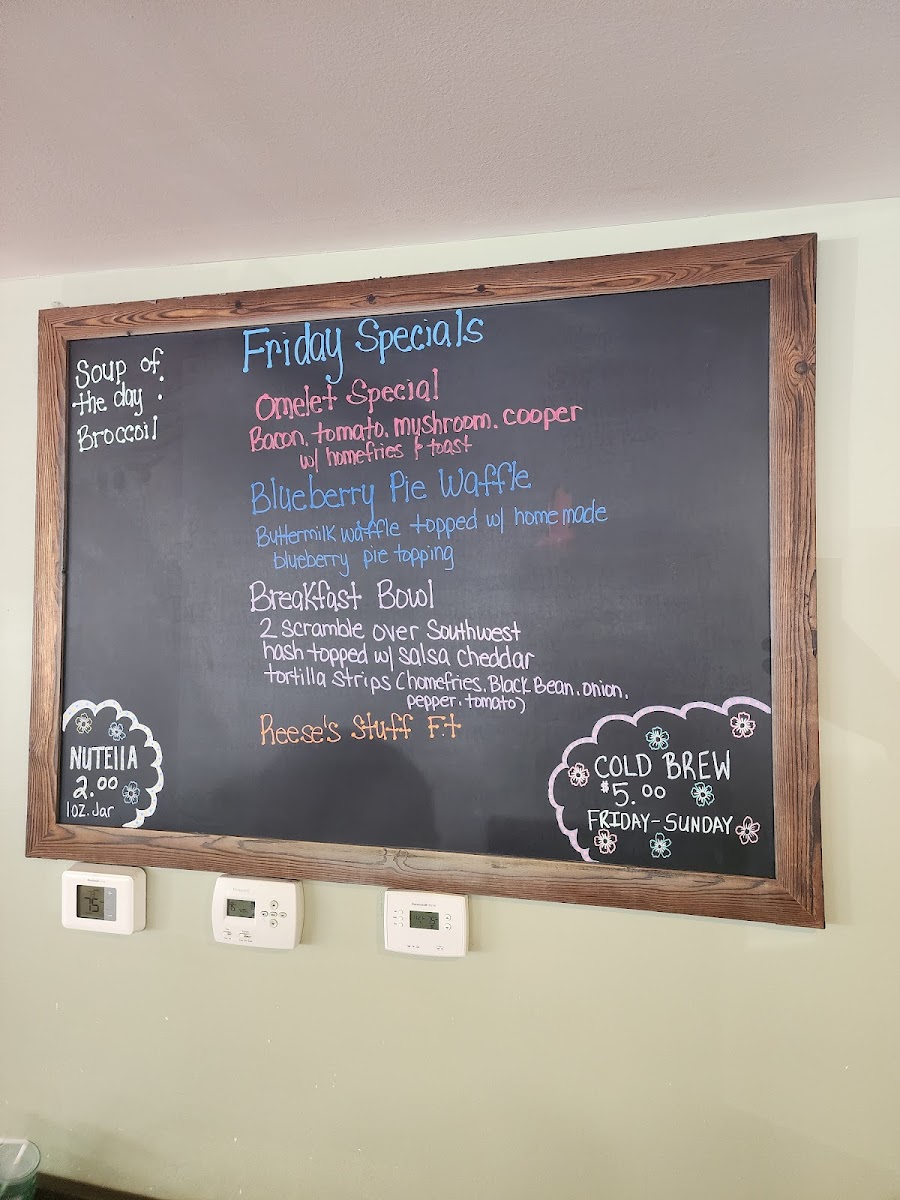 Friday Specials
Soup of
the day :
Broccoil
Omelet Special
Bacon, tomato, myshroom, cooper
w/ homefries & toast
Blueberry Pie Waffle
Buttermilk waffle topped w/ home made
blueberry pie topping
Breakfast Bowl
2 scramble over Southwest
hash topped w/ salsa cheddar
tortilla strips (homefries, Black Bean, onion,
pepper, tomato)
Reese's Stuff F.t
NUTEllA
2.00
1oz. Jar
COLD BREW
$5.00
FRIDAY-SUNDAY
75